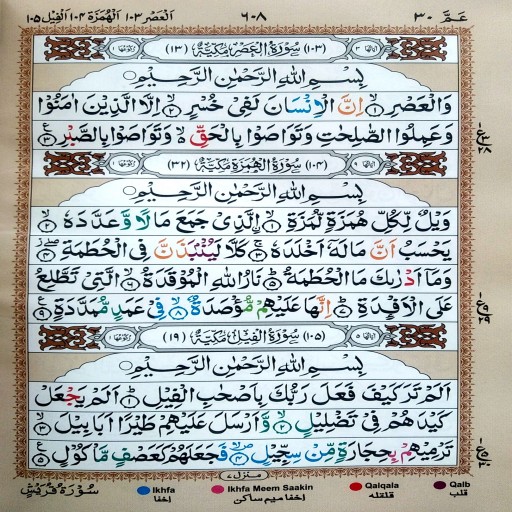 عَمَّ ٣٠ ٦٠٨ اَلْعَصْر ١٠٣ اَلْهُمَزَة ١٠٤ اَلْفِيْل ١٠٥
(١٠٣) سُوْرَةُ الْعَصْرِ مَكِّيَّةٌ (١٣)
بِسْمِ اللّٰهِ الرَّحْمٰنِ الرَّحِيْمِ
وَالْعَصْرِ ١ اِنَّ الْاِنْسَانَ لَفِيْ خُسْرٍ ٢ اِلَّا الَّذِيْنَ اٰمَنُوْا
وَعَمِلُوا الصّٰلِحٰتِ وَتَوَاصَوْا بِالْحَقِّ ە وَتَوَاصَوْا بِالصَّبْرِ ٣
(١٠٤) سُوْرَةُ الْهُمَزَةِ مَكِّيَّةٌ (٣٢)
بِسْمِ اللّٰهِ الرَّحْمٰنِ الرَّحِيْمِ
وَيْلٌ لِّكُلِّ هُمَزَةٍ لُّمَزَةٍ ١ اِۨلَّذِيْ جَمَعَ مَالًا وَّعَدَّدَهٗ ٢
يَحْسَبُ اَنَّ مَالَهٗٓ اَخْلَدَهٗ ٣ كَلَّا لَيُنْۢبَذَنَّ فِي الْحُطَمَةِ ٤
وَمَآ اَدْرٰىكَ مَا الْحُطَمَةُ ٥ نَارُ اللّٰهِ الْمُوْقَدَةُ ٦ الَّتِيْ تَطَّلِعُ
عَلَى الْاَفْـِٕدَةِ ٧ اِنَّهَا عَلَيْهِمْ مُّؤْصَدَةٌ ٨ فِيْ عَمَدٍ مُّمَدَّدَةٍ ٩
(١٠٥) سُوْرَةُ الْفِيْلِ مَكِّيَّةٌ (١٩)
بِسْمِ اللّٰهِ الرَّحْمٰنِ الرَّحِيْمِ
اَلَمْ تَرَ كَيْفَ فَعَلَ رَبُّكَ بِاَصْحٰبِ الْفِيْلِ ١ اَلَمْ يَجْعَلْ
كَيْدَهُمْ فِيْ تَضْلِيْلٍ ٢ وَّاَرْسَلَ عَلَيْهِمْ طَيْرًا اَبَابِيْلَ ٣
تَرْمِيْهِمْ بِحِجَارَةٍ مِّنْ سِجِّيْلٍ ٤ فَجَعَلَهُمْ كَعَصْفٍ مَّاْكُوْلٍ ٥
منزل ٧
Ikhfa اخفا Ikhfa Meem Saakin اخفا میم ساکن Qalqala قلقله Qalb قلب
سُوْرَةُ قُرَيْشٍ